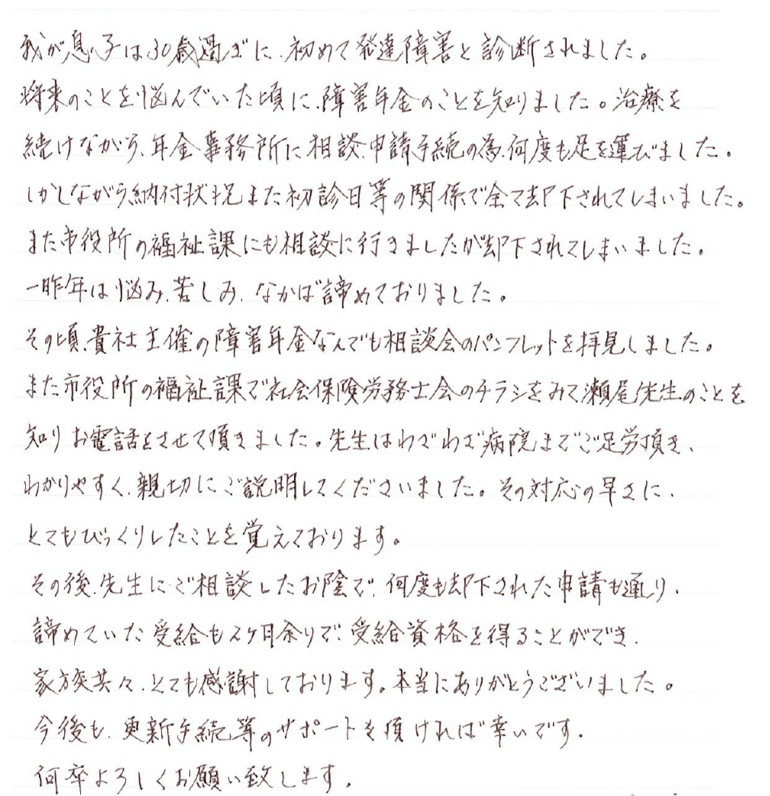 我が息子は30歳過ぎに、初めて発達障害と診断されました。
将来のことを悩んでいた頃に、障害年金のことを知りました。治療を
続けながら、年金事務所に相談、申請手続の為、何度も足を運びました。
しかしながら納付状況また初診日等の関係で全て却下されてしまいました。
また市役所の福祉課にも相談に行きましたが却下されてしまいました。
一昨年は悩み、苦しみ、なかば諦めておりました。
その頃、貴社主催の障害年金なんでも相談会のパンフレットを拝見しました。
また市役所の福祉課で社会保険労務士会のチラシをみて瀬尾先生のことを
知りお電話をさせて頂きました。先生はわざわざ病院までご足労頂き、
わかりやすく、親切にご説明してくださいました。その対応の早さに、
とてもびっくりしたことを覚えております。
その後、先生にご相談したお陰で、何度も却下された申請も通り、
諦めていた受給も2ヶ月余りで、受給資格を得ることができ、
家族共々、とても感謝しております。本当にありがとうございました。
今後も、更新手続等のサポートを頂ければ幸いです。
何卒よろしくお願い致します。